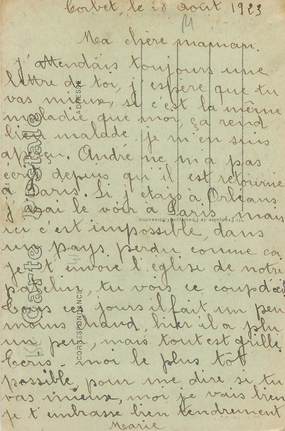 Corbet, le 28 août 1923
Ma chère maman.
J'attendais toujours une
lettre de toi, j'espère que tu
vas mieux, si c'est la même
maladie que moi, ça rend
bien malade je m'en suis
aperçu. André ne m'a pas
écrit depuis qu'il est retourné
à Paris. Si j'étais à Orléans
j'irai le voir à Paris, mais
ici c'est impossible, dans
un pays perdu comme ça
je t'envoie l'église de notre
patelin, tu vois ce coup d'œil
Tous ces jours il fait un peu
moins chaud, hier il a plu
un peu, mais tout est grillé
Écris-moi le plus tôt
possible, pour me dire si tu
vas mieux, moi je vais bien
je t'embrasse bien tendrement
Marie
Carte Postale
CORRESPONDANCE
ADRESSE